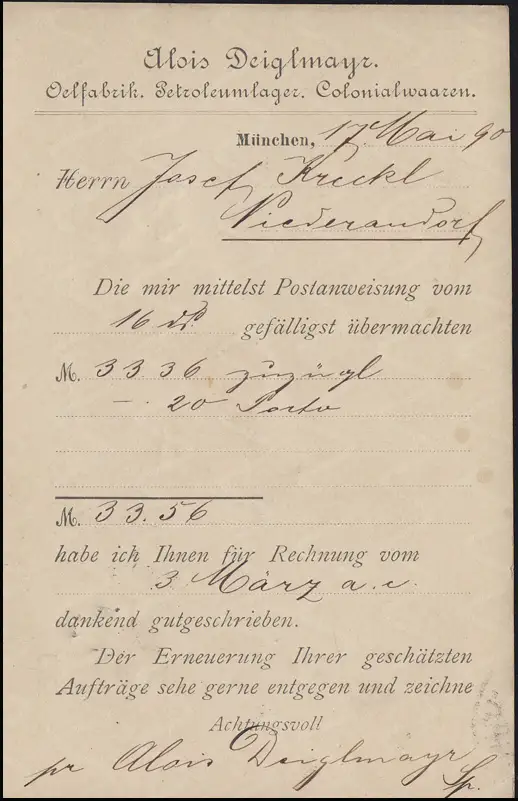 Alois Deiglmayr.
Oelfabrik. Petroleumlager. Colonialwaaren.
München, 17. Mai 90
Herrn Josef Kreckl
Niederaudorf
Die mir mittelst Postanweisung vom
16 ds. gefälligst übermachten
M. 33 36 zuzügl
— 20 Porto
M. 33.56
habe ich Ihnen für Rechnung vom
3. März a. c.
dankend gutgeschrieben.
Der Erneuerung Ihrer geschätzten
Aufträge sehe gerne entgegen und zeichne
Achtungsvoll
pr Alois Deiglmayr